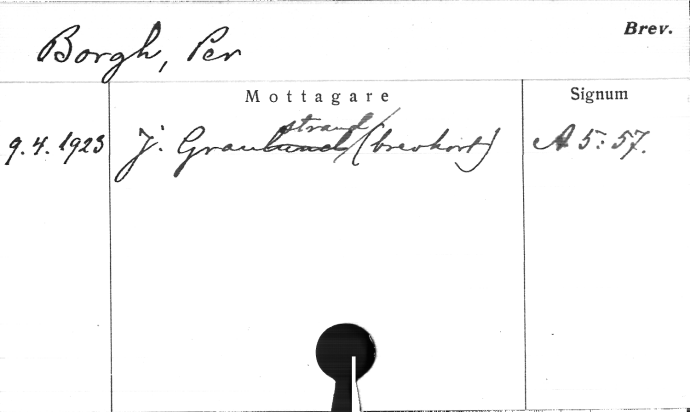 Borgh, Per
Brev.
Mottagare
Signum
9.4.1923 J. Granstrand (brevkort) A 5:57.